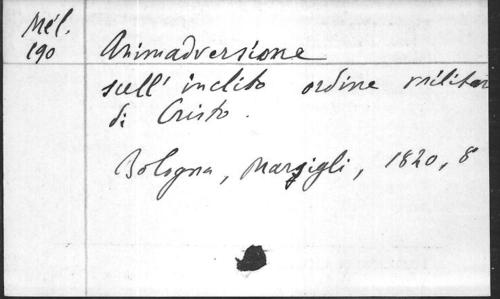 Mél.
190
Animadversione
sull' inclito ordine militar
di Cristo.
Bologna, Marsigli, 1820, 8°